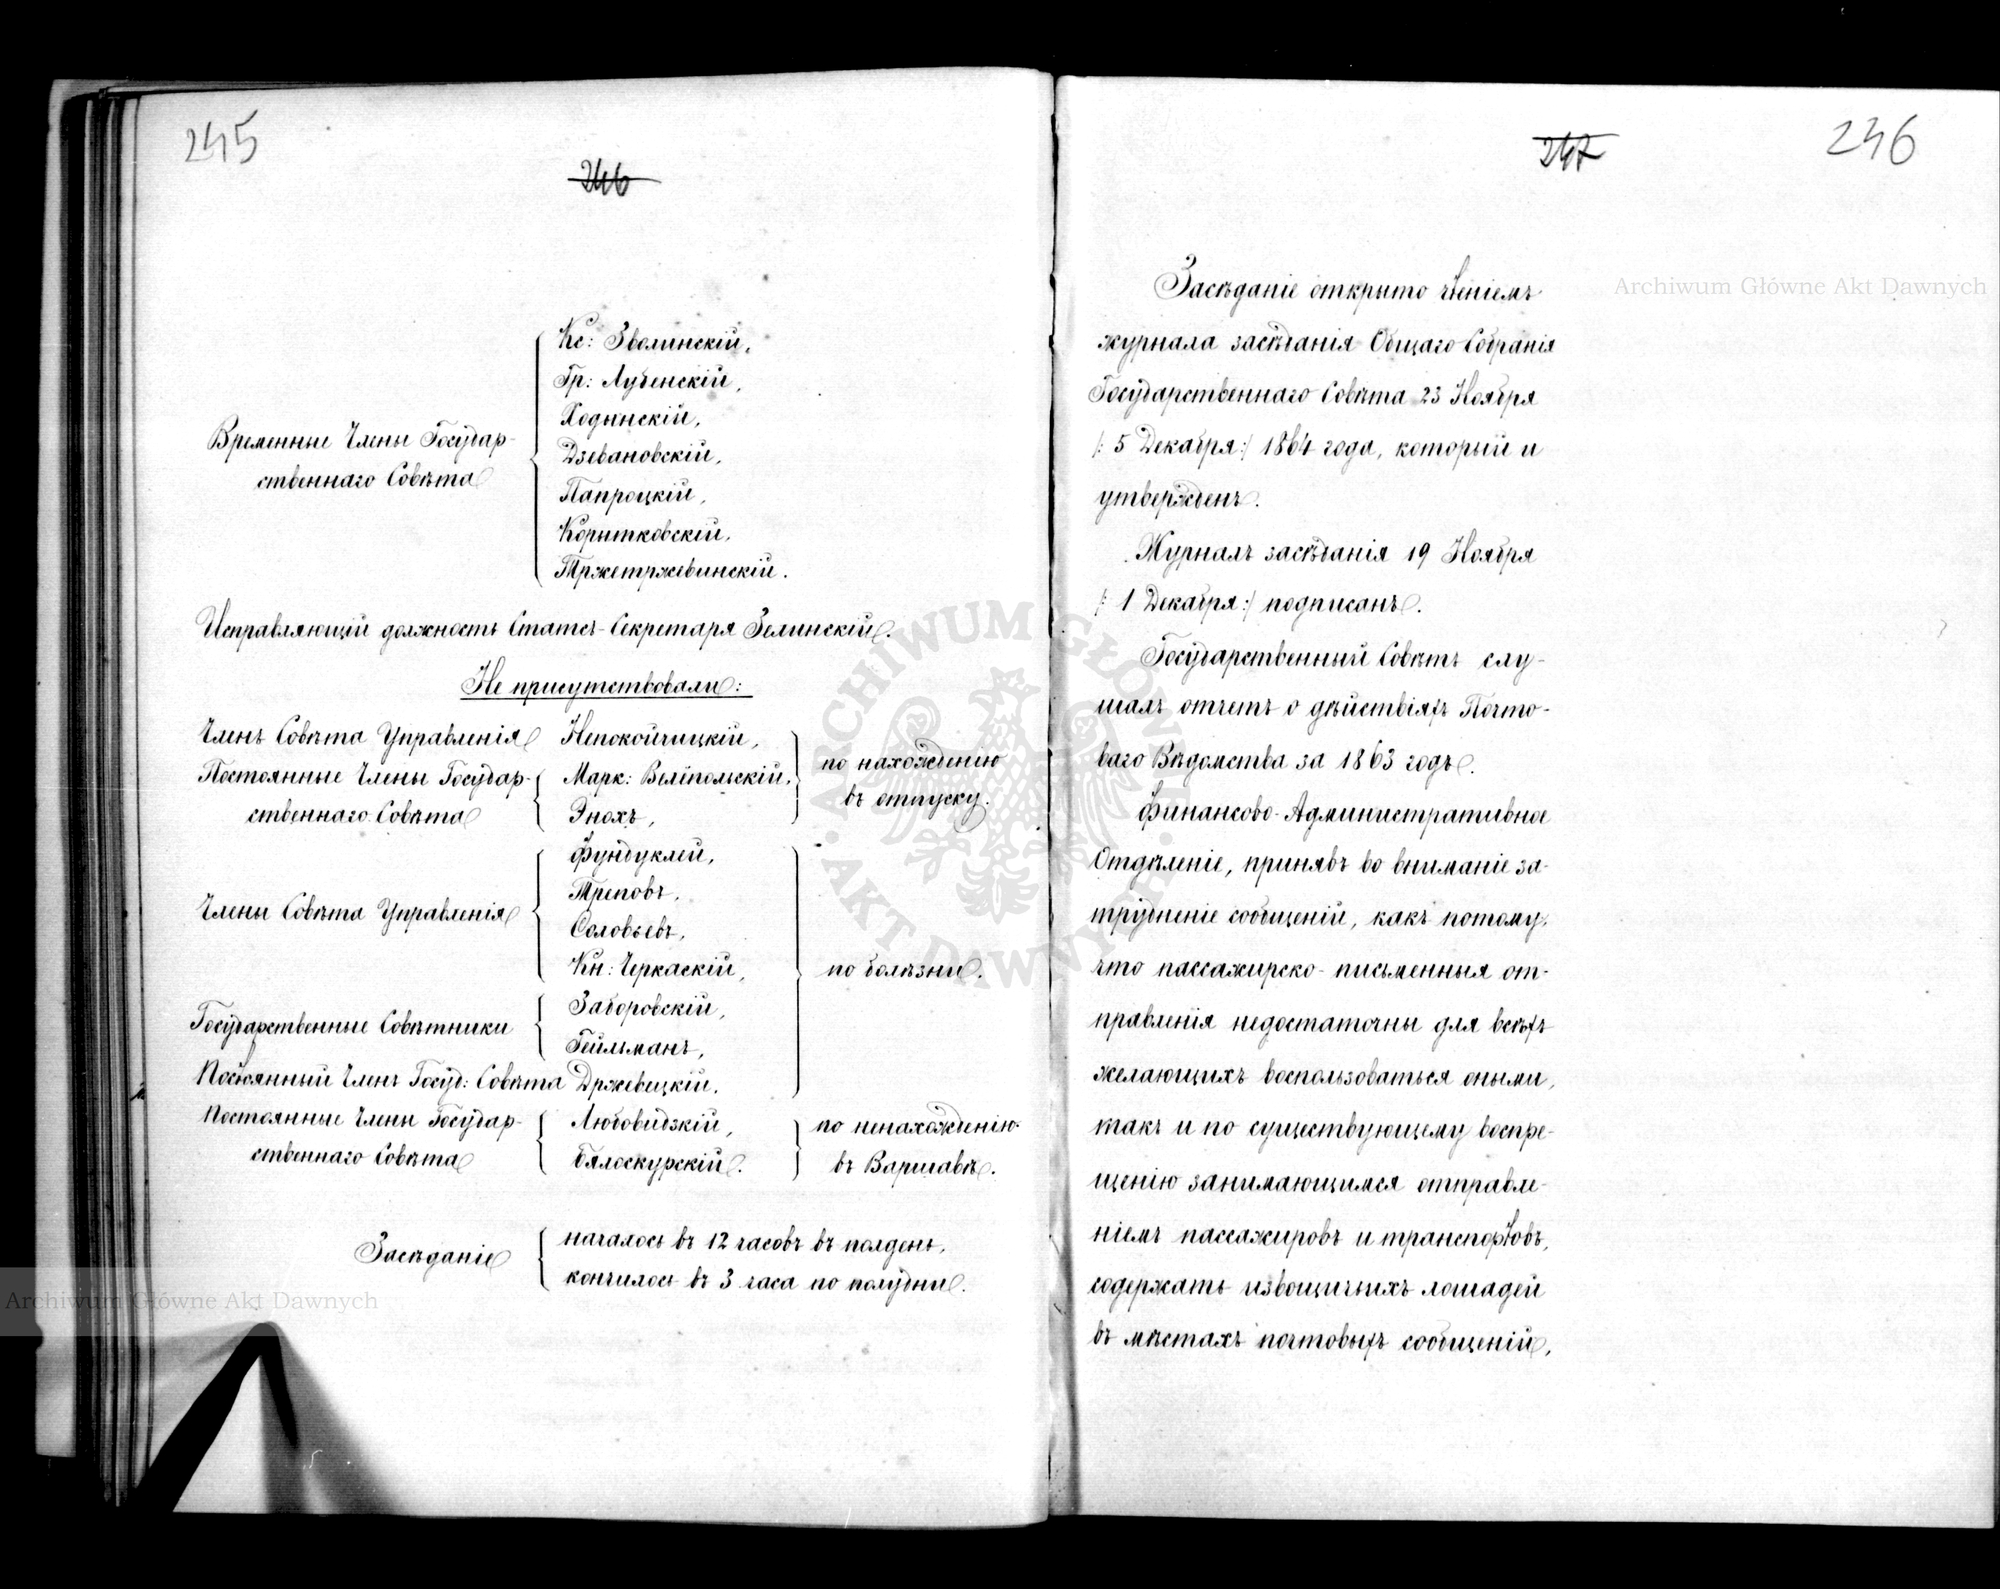 245
246
Временные Члены Государ-
ственнаго Совѣта
Кс: Зволинскій,
Гр: Лубенскій,
Ходынскій,
Дзевановскій,
Папроцкій,
Коритковскій,
Тржетржевинскій.
Исправляющій должность Статсъ-Секретаря Зелинскій.
Не присутствовали:
Членъ Совѣта Управленія Непокойчицкій,
Постоянные Члены Государ-
ственнаго Совѣта
Марк: Велёпольскій,
Энохъ,
по нахожденію
въ отпуску.
Члены Совѣта Управленія
Фундуклей,
Треповъ,
Соловьевъ,
Кн: Черкаскій,
Государственные Совѣтники
Заборовскій,
Гейльманъ,
Постоянный Членъ Госуд: Совѣта Држевецкій,
по болѣзни.
Постоянные Члены Государ-
ственнаго Совѣта
Любовидзкій,
Бялоскурскій.
по ненахожденію
въ Варшавѣ.
Засѣданіе
началось въ 12 часовъ въ полдень,
кончилось въ 3 часа по полудни.
246
247
Засѣданіе открыто чтеніемъ
журнала засѣданія Общаго Собранія
Государственнаго Совѣта 23 Ноября
/: 5 Декабря :/ 1864 года, который и
утвержденъ.
Журналъ засѣданія 19 Ноября
/: 1 Декабря :/ подписанъ.
Государственный Совѣтъ слу-
шалъ отчетъ о дѣйствіяхъ Почто-
ваго Вѣдомства за 1863 годъ.
Финансово-Административное
Отдѣленіе, принявъ во вниманіе за-
трудненіе сообщеній, какъ потому,
что пассажирско-письменныя от-
правленія недостаточны для всѣхъ
желающихъ воспользоваться оными,
такъ и по существующему воспре-
щенію занимающимся отправле-
ніемъ пассажировъ и транспортовъ,
содержать извощичьихъ лошадей
въ мѣстахъ почтовыхъ сообщеній,
Archiwum Główne Akt Dawnych
Archiwum Główne Akt Dawnych
ARCHIWUM GŁÓWNE AKT DAWNYCH